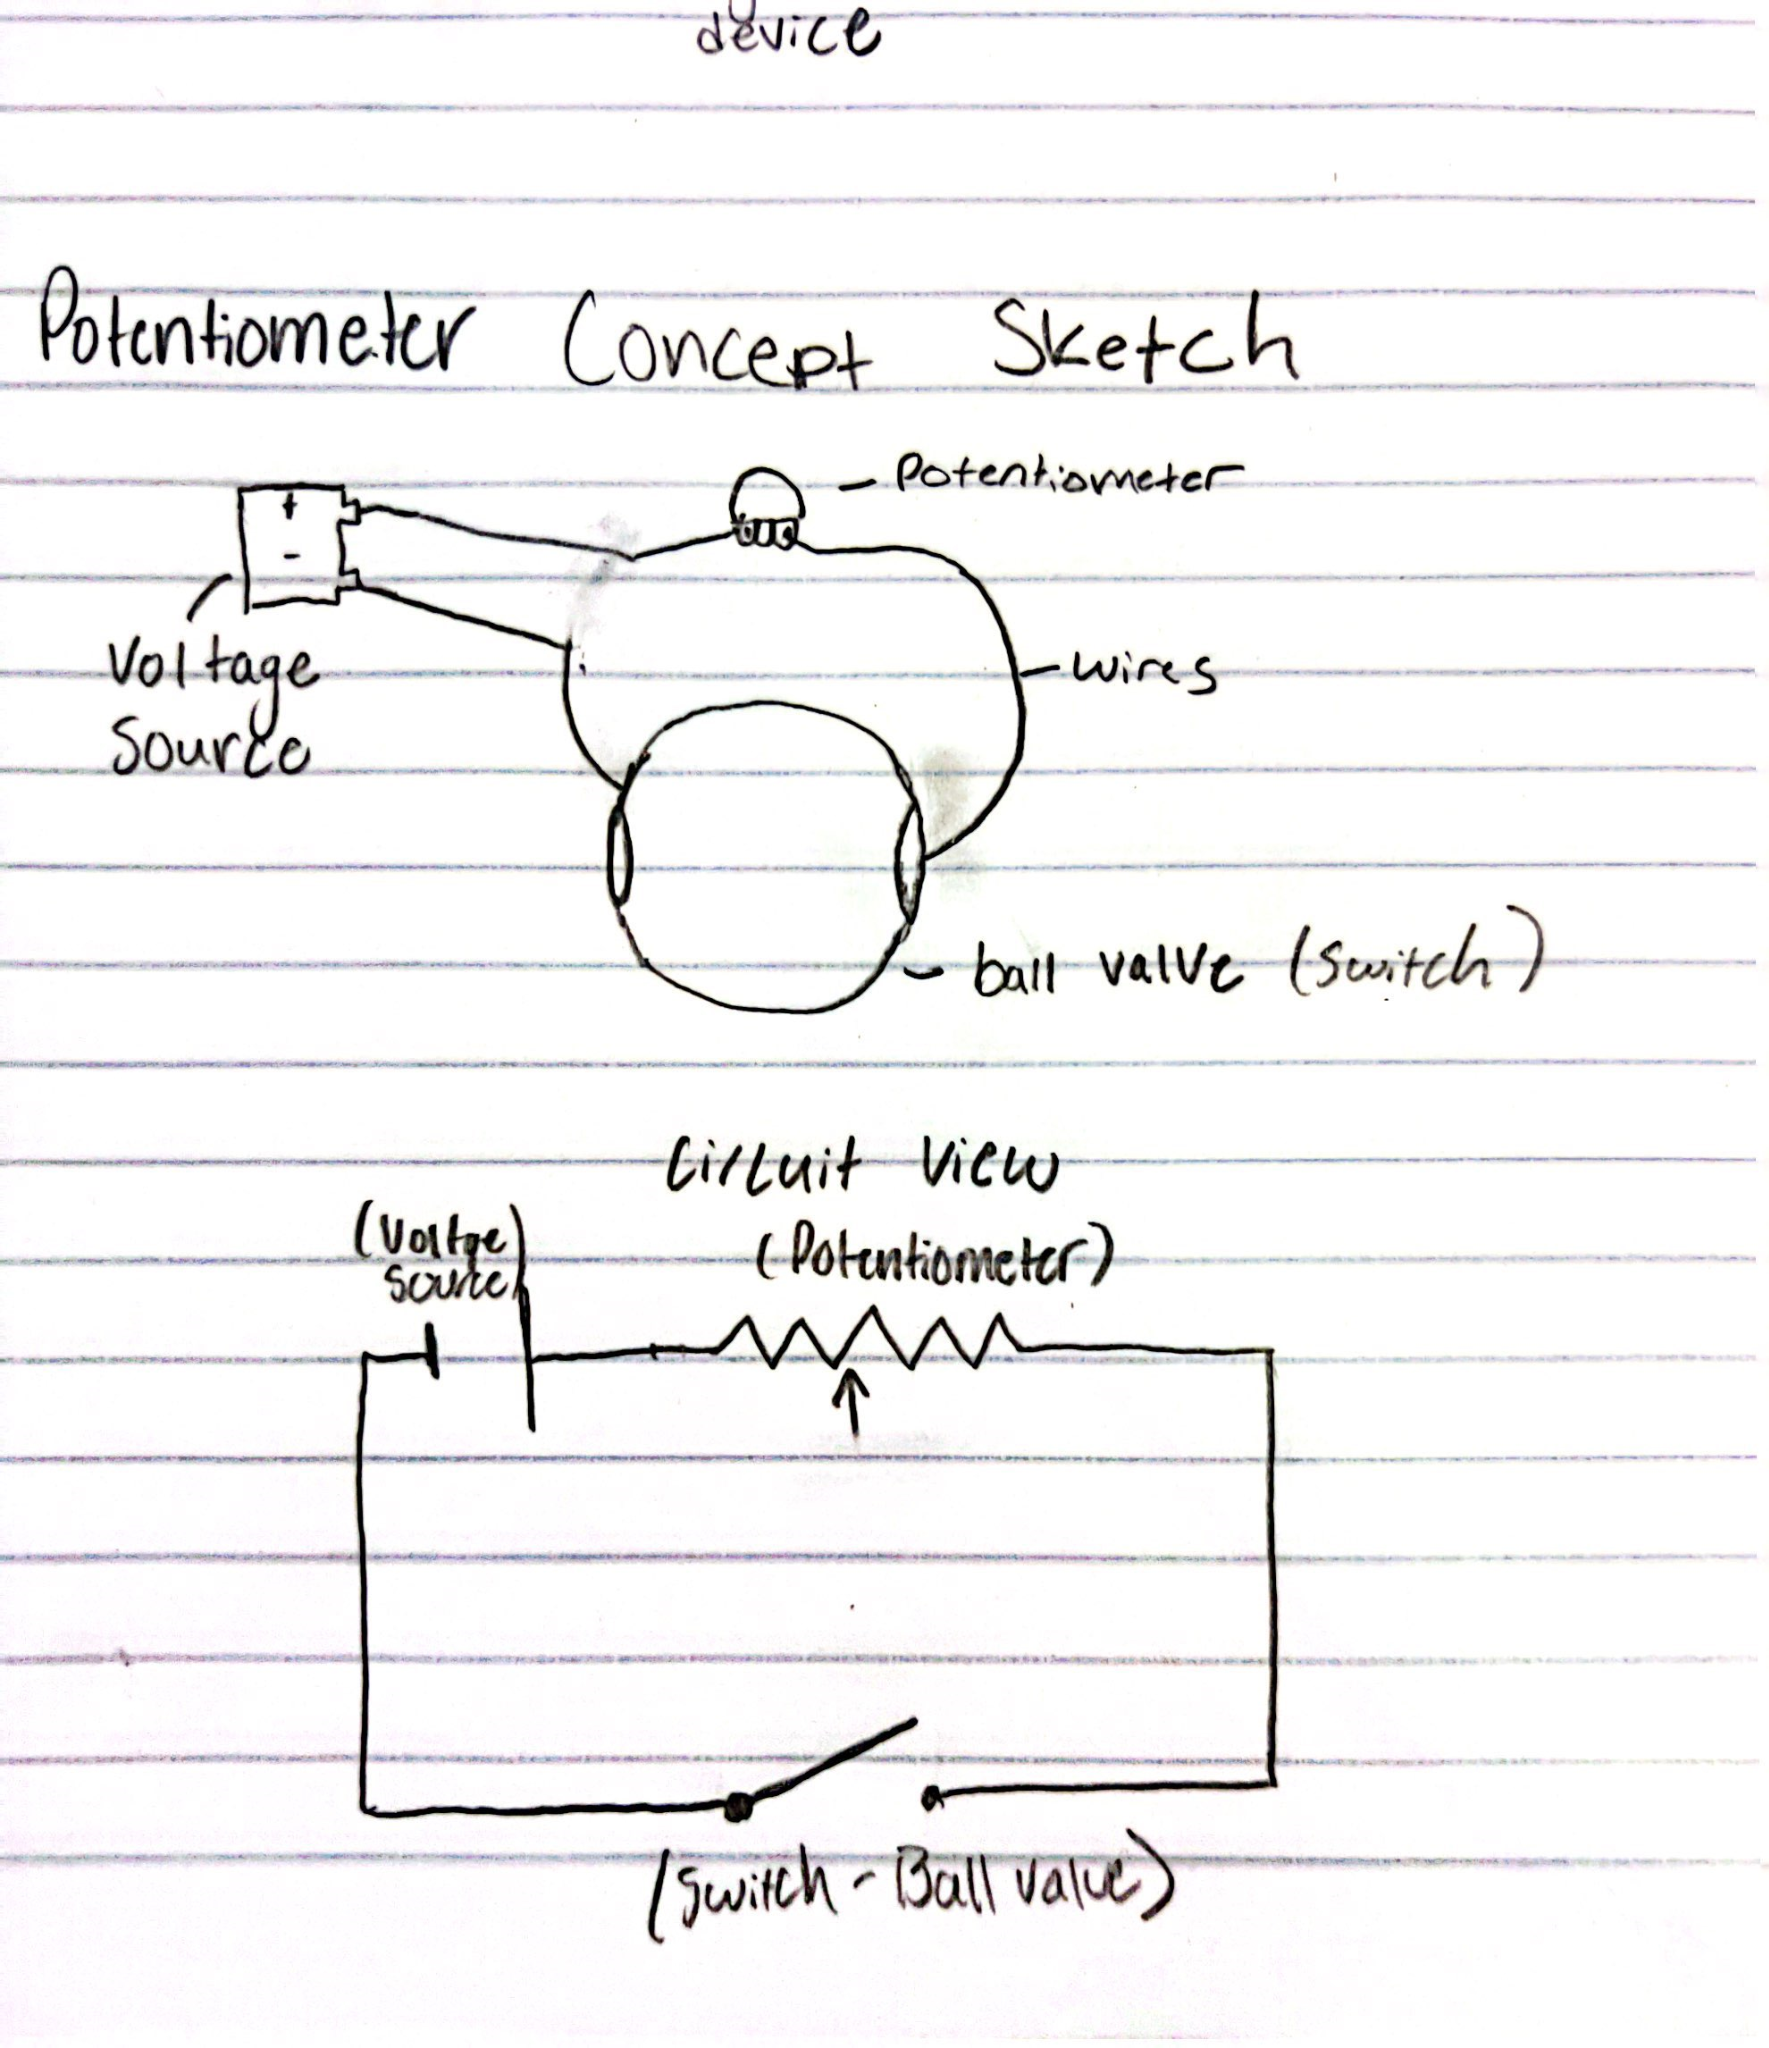 device
Potentiometer Concept Sketch
+
-
Potentiometer
Voltage
Source
wires
ball valve (switch)
Circuit View
(Voltge
source)
(Potentiometer)
(Switch - Ball valve)